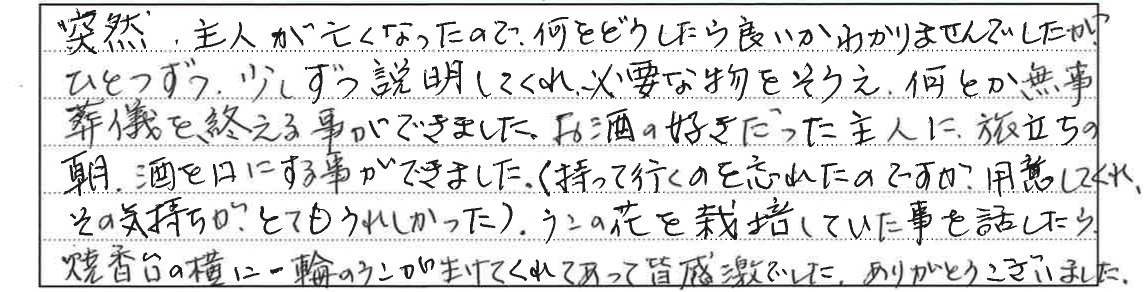 突然、主人が亡くなったので、何をどうしたら良いかわかりませんでしたが、
ひとつずつ、少しずつ説明してくれ、必要な物をそろえ、何とか無事
葬儀を終える事ができました。お酒の好きだった主人に、旅立ちの
朝、酒を口にする事ができました。(持って行くのを忘れたのですが、用意してくれ、
その気持ちが、とてもうれしかった)。ランの花を栽培していた事を話したら
焼香台の横に一輪のランが生けてくれてあって皆感激でした。ありがとうございました。